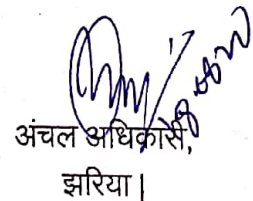 अंचल अधिकारी,
झरिया।